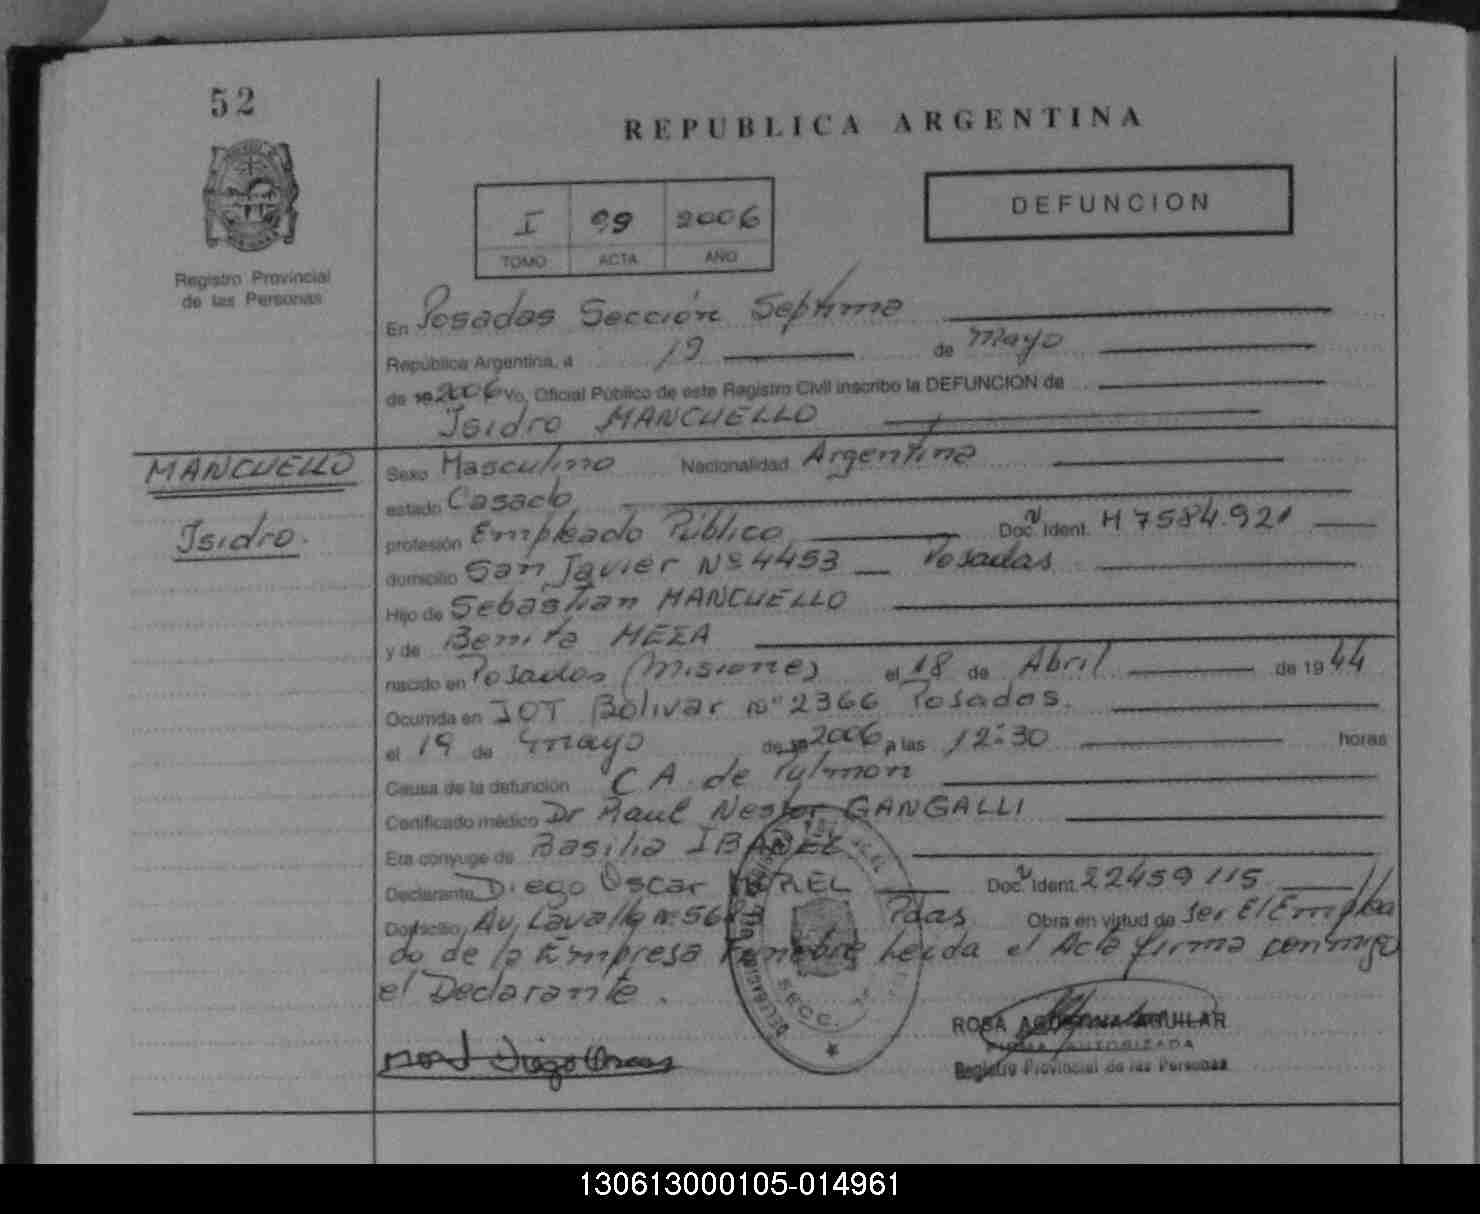 52
REPUBLICA ARGENTINA
Registro Provincial
de las Personas
I 99 2006
TOMO ACTA AÑO
DEFUNCION
En Posadas Sección Septima
República Argentina, a 19 de Mayo
de 19 2006 Yo, Oficial Público de este Registro Civil inscribo la DEFUNCION de
Isidro MANCUELLO
MANCUELLO
Isidro.
Sexo Masculino Nacionalidad Argentina
estado Casado
profesión Empleado Público Doc. Ident. M 7584.921
domicilio San Javier Nº 4453 Posadas
Hijo de Sebastian MANCUELLO
y de Benita MEZA
nacido en Posadas (Misiones) el 18 de Abril de 1944
Ocurrida en IOT Bolivar nº 2366 Posadas.
el 19 de mayo de 19 2006 a las 12:30 horas
Causa de la defunción CA. de Pulmon
Certificado médico Dr Raul Nestor GANGALLI
Era conyuge de Basilia
Declarante Diego Oscar MOREL Doc. Ident. 22459115
Domicilio Av. Lavalle nº Pdas Obra en virtud de Ser El Emplea
do de la Empresa Funebre Leída el Acta firma conmigo
el Declarante.
SECC.
ROSA AGUSTINA AGUILAR
FIRMA AUTORIZADA
Registro Provincial de las Personas
130613000105-014961